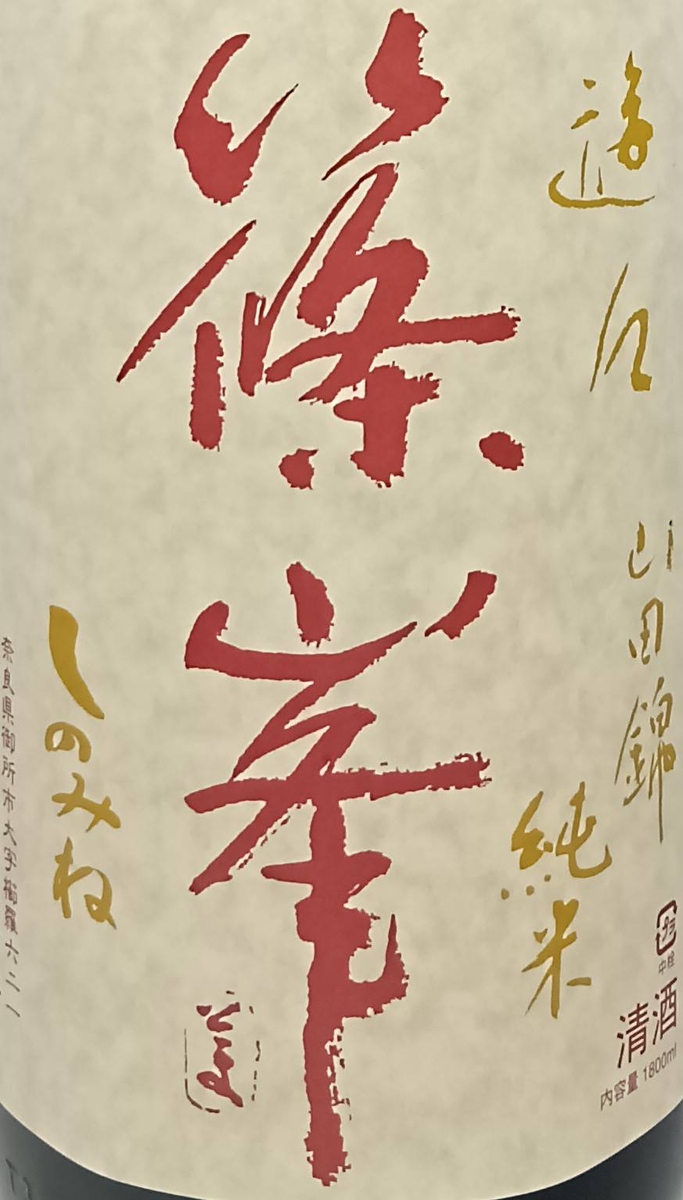 遊々
山田錦
純米
プラ
中栓
清酒
内容量 1800ml
篠峯
しのみね
奈良県御所市大字櫛羅六二一